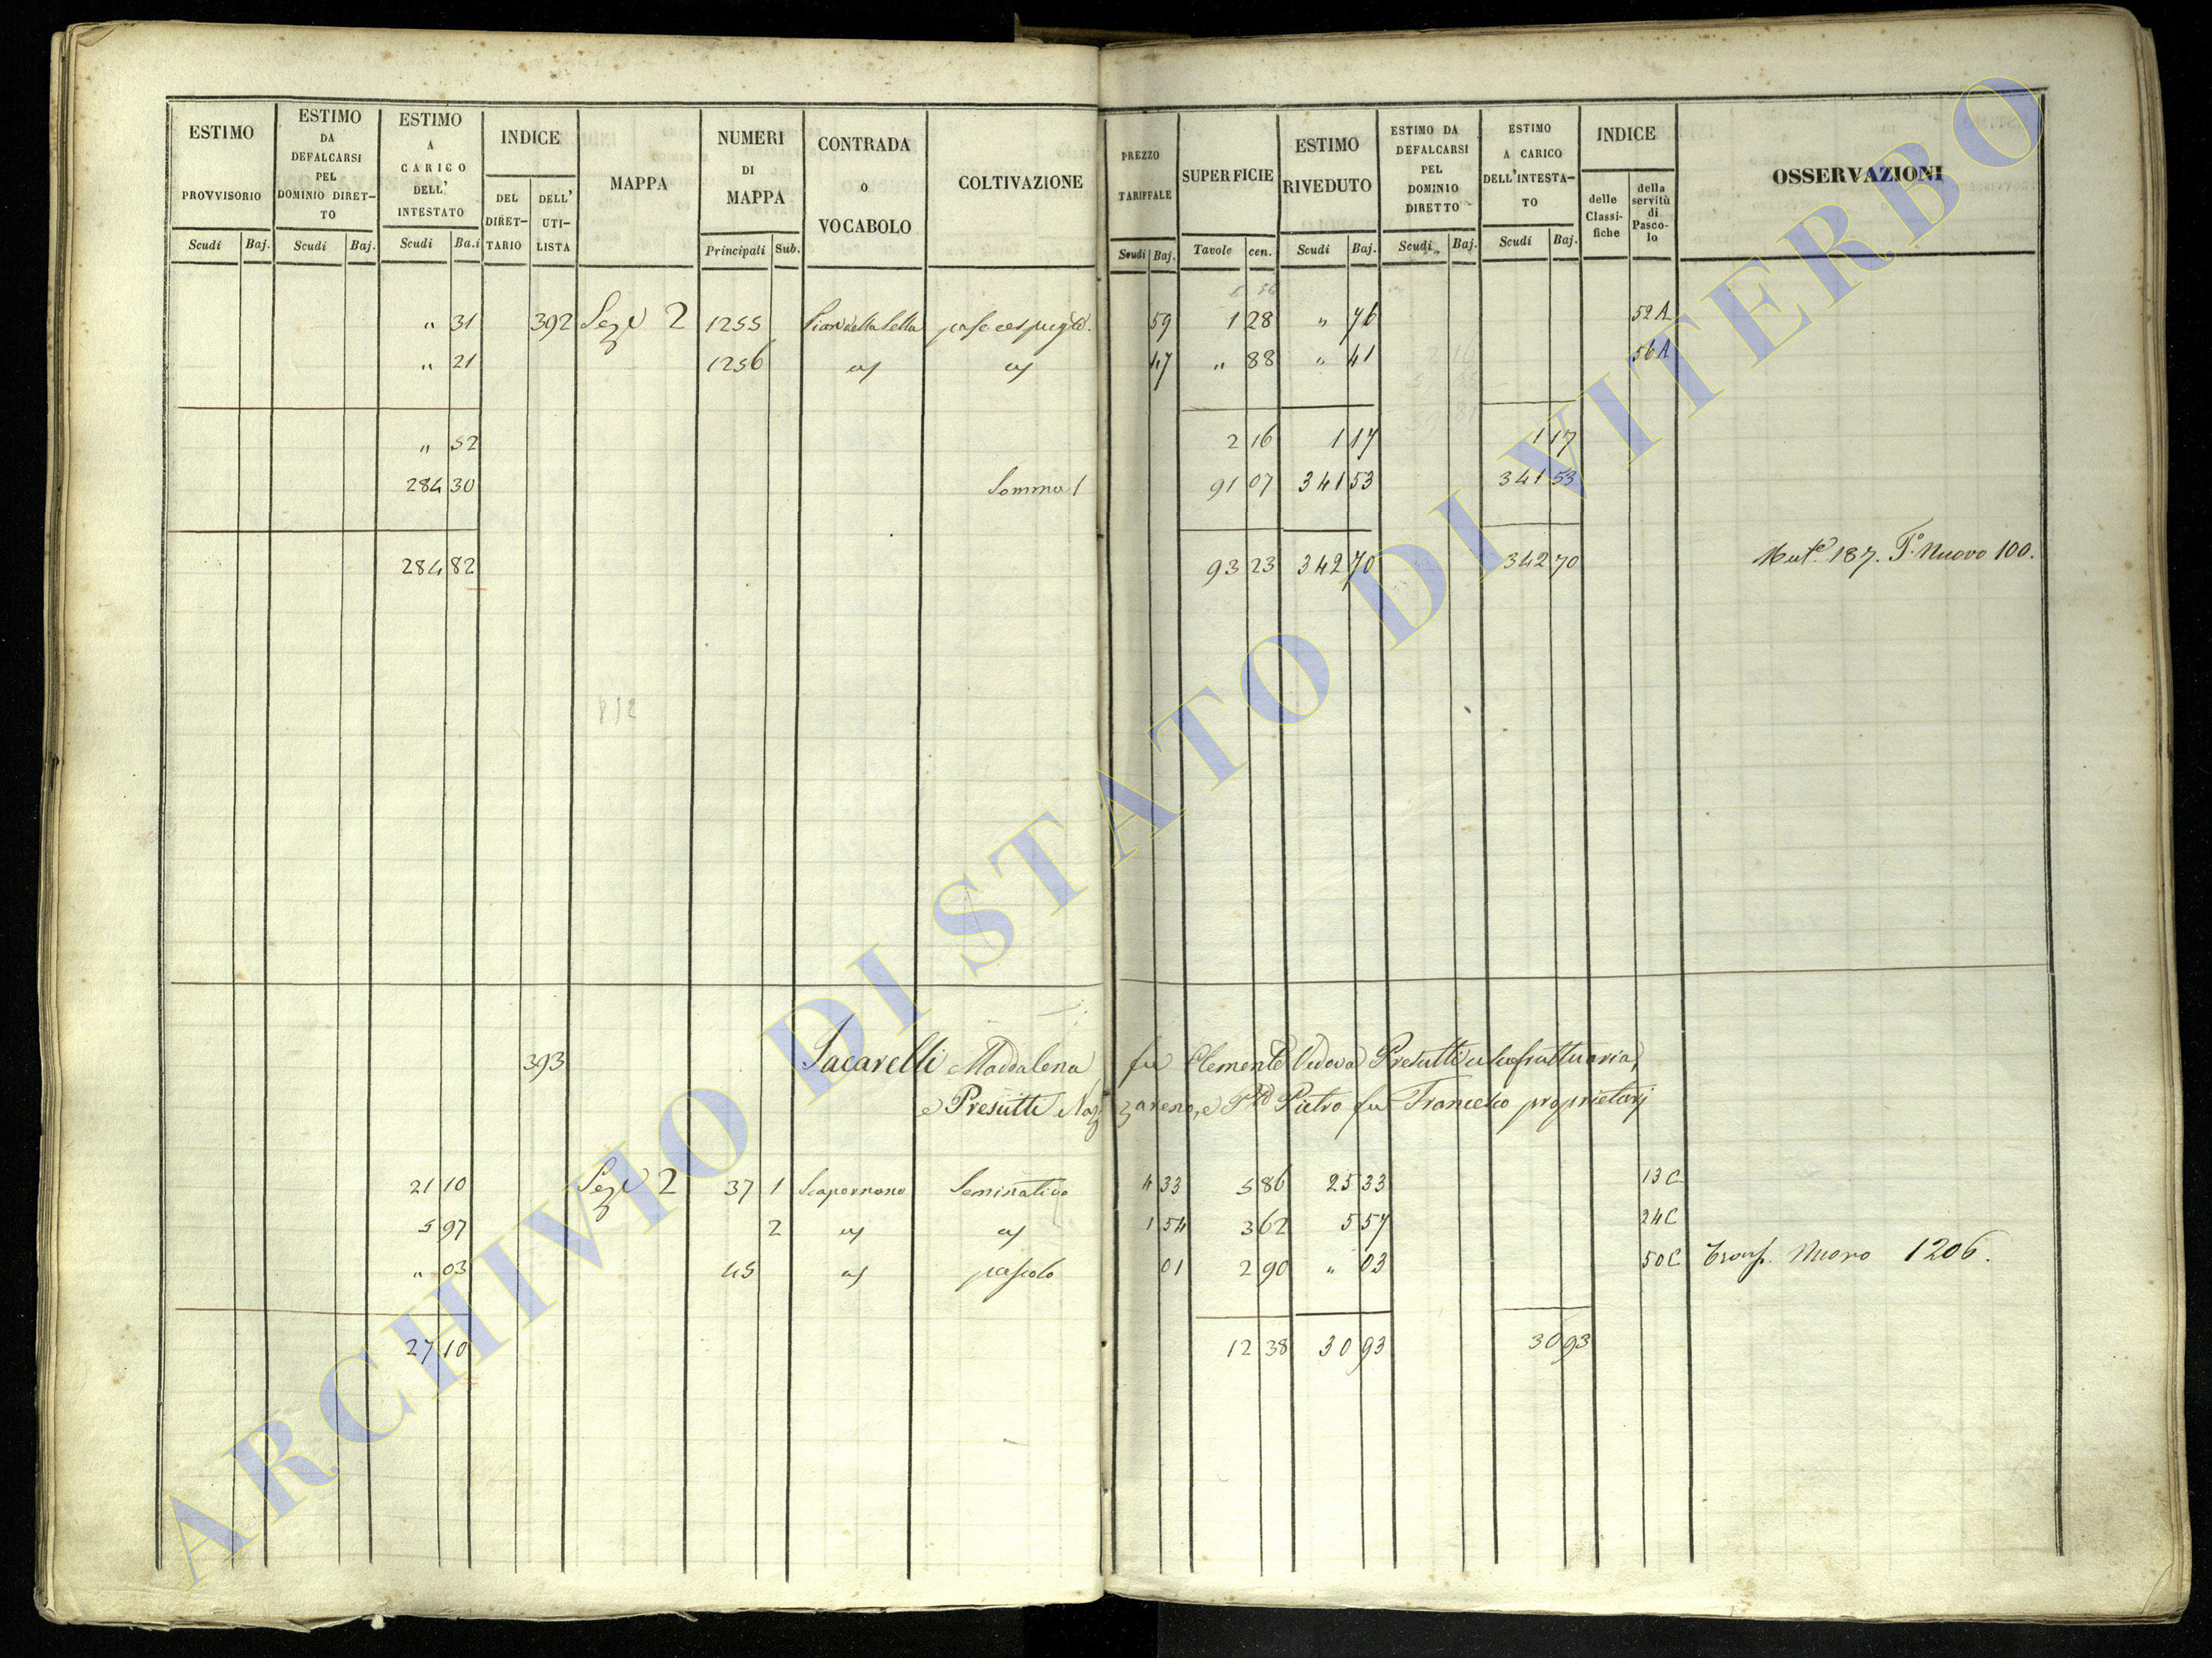 ESTIMO PROVVISORIO | ESTIMO DA DEFALCARSI PEL DOMINIO DIRET-TO | ESTIMO A CARICO DELL' INTESTATO | INDICE | MAPPA | NUMERI DI MAPPA | CONTRADA O VOCABOLO | COLTIVAZIONE | PREZZO TARIFFALE | SUPERFICIE | ESTIMO RIVEDUTO | ESTIMO DA DEFALCARSI PEL DOMINIO DIRETTO | ESTIMO A CARICO DELL'INTESTA-TO | INDICE | OSSERVAZIONI
DEL DIRET-TARIO | DELL' UTI-LISTA | delle Classi-fiche | della servitù di Pasco-lo
Scudi | Baj. | Scudi | Baj. | Scudi | Ba.i | Principali | Sub. | Scudi | Baj. | Tavole | cen. | Scudi | Baj. | Scudi | Baj. | Scudi | Baj.
" 31 | 392 | Seze 2 | 1255 | 59 | 1 28 | " 76 | 52 A
" 21 | 1256 | 47 | " 88 | " 41 | 56 A
" 52 | 2 16 | 1 17 | 1 17
284 30 | Somma | 91 07 | 341 53 | 341 53
284 82 | 93 23 | 342 70 | 342 70 | Mut.e 187. P.o Nuovo 100.
393 | Sacarelli Maddalena fu Clemente Vedova Presutti usufruttuaria,
e Presutti Nazzareno, e Pietro fu Francesco proprietarj
21 10 | Seze 2 | 37 1 | Scapernano | Seminativo | 4 33 | 5 86 | 25 33 | 13 C
5 97 | 2 | 1 54 | 3 62 | 5 57 | 24 C
" 03 | 45 | pascolo | 01 | 2 90 | " 03 | 50 C | Trasp. Nuovo 1206.
27 10 | 12 38 | 30 93 | 30 93
ARCHIVIO DI STATO DI VITERBO